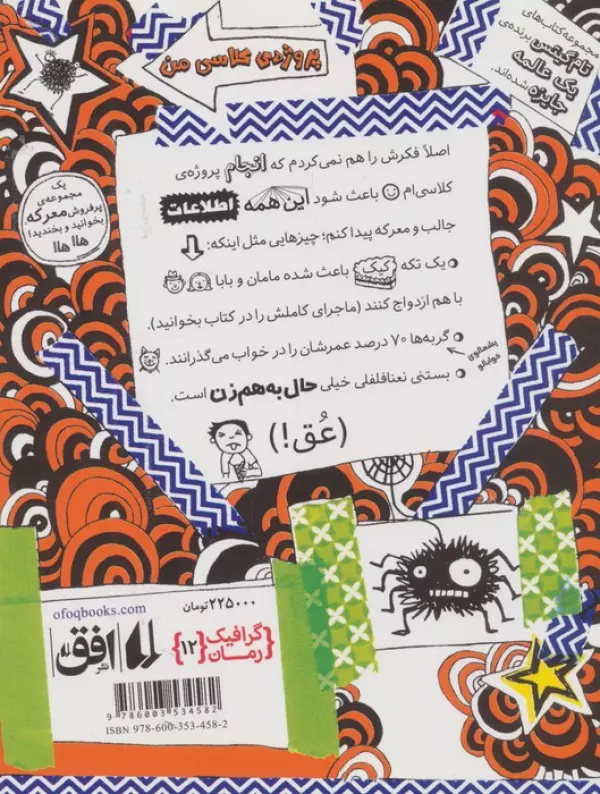 پروژه‌ی کلاسی من
مجموعه کتاب‌های
تام گیتس برنده‌ی
یک عالمه
جایزه شده‌اند.
یک
مجموعه‌ی
پرفروش معرکه.
بخوانید و بخندید!
هاها هاها
اصلاً فکرش را هم نمی‌کردم که انجام پروژه‌ی
کلاسی‌ام باعث شود این همه اطلاعات
جالب و معرکه پیدا کنم؛ چیزهایی مثل اینکه:
• یک تکه کیک باعث شده مامان و بابا
با هم ازدواج کنند (ماجرای کاملش را در کتاب بخوانید).
• گربه‌ها ۷۰ درصد عمرشان را در خواب می‌گذرانند.
پشمالوی
خوابالو
• بستنی نعنافلفلی خیلی حال به هم زن است.
(عُق!)
ofoqbooks.com
۲۲۵۰۰۰ تومان
نشر افق
گرافیک
رمان
{۱۲}
9 786003 534582
ISBN 978-600-353-458-2